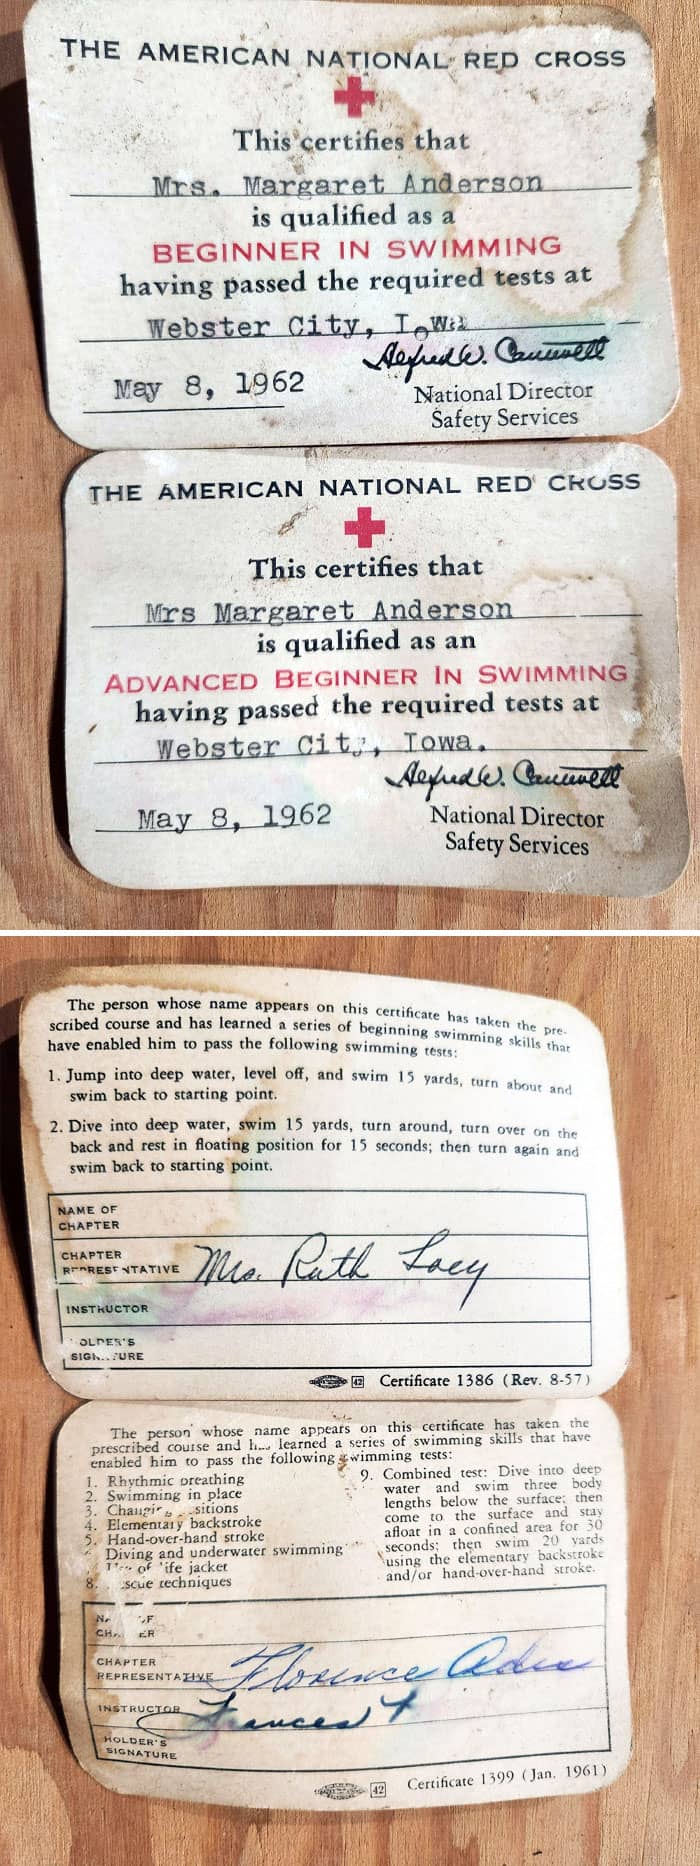 THE AMERICAN NATIONAL RED CROSS
This certifies that
Mrs. Margaret Anderson
is qualified as a
BEGINNER IN SWIMMING
having passed the required tests at
Webster City, Iowa
Alfred W. Cantwell
May 8, 1962
National Director
Safety Services
THE AMERICAN NATIONAL RED CROSS
This certifies that
Mrs Margaret Anderson
is qualified as an
ADVANCED BEGINNER IN SWIMMING
having passed the required tests at
Webster City, Iowa.
Alfred W. Cantwell
May 8, 1962
National Director
Safety Services
The person whose name appears on this certificate has taken the pre-
scribed course and has learned a series of beginning swimming skills that
have enabled him to pass the following swimming tests:
1. Jump into deep water, level off, and swim 15 yards, turn about and
swim back to starting point.
2. Dive into deep water, swim 15 yards, turn around, turn over on the
back and rest in floating position for 15 seconds; then turn again and
swim back to starting point.
NAME OF
CHAPTER
CHAPTER
REPRESENTATIVE
Mrs. Ruth
INSTRUCTOR
HOLDER'S
SIGNATURE
42 Certificate 1386 (Rev. 8-57)
The person whose name appears on this certificate has taken the
prescribed course and has learned a series of swimming skills that have
enabled him to pass the following swimming tests:
1. Rhythmic breathing
2. Swimming in place
3. Changing positions
4. Elementary backstroke
5. Hand-over-hand stroke
Diving and underwater swimming
Use of life jacket
8. Rescue techniques
9. Combined test: Dive into deep
water and swim three body
lengths below the surface; then
come to the surface and stay
afloat in a confined area for 30
seconds; then swim 20 yards
using the elementary backstroke
and/or hand-over-hand stroke.
NAME OF
CHAPTER
CHAPTER
REPRESENTATIVE
Florence
INSTRUCTOR
Frances
HOLDER'S
SIGNATURE
42 Certificate 1399 (Jan. 1961)